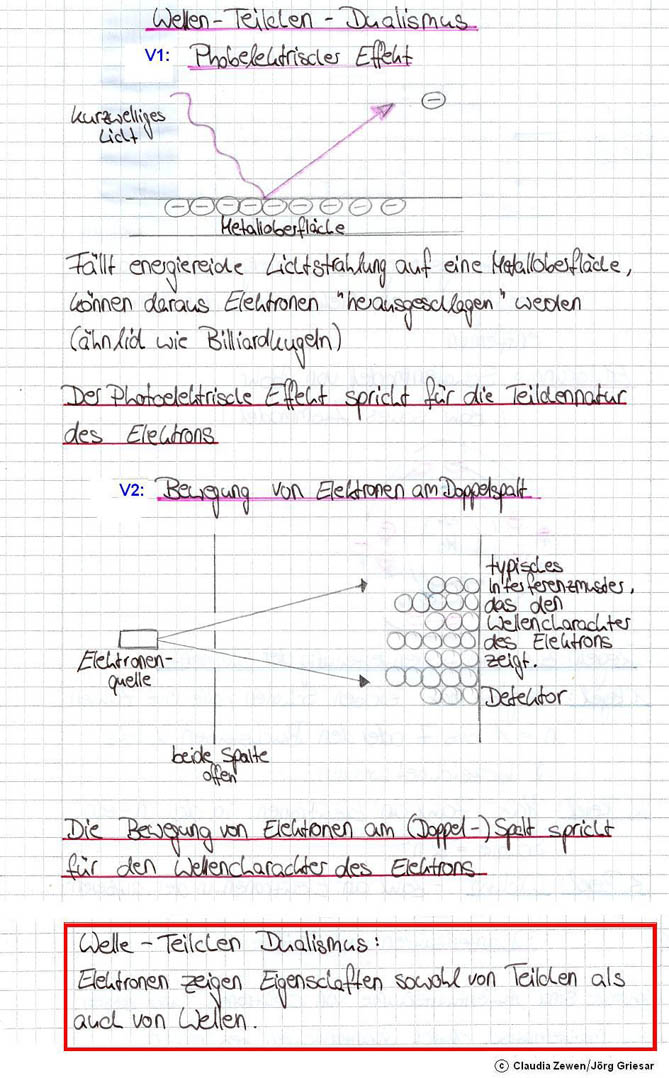 Wellen-Teilchen-Dualismus
V1: Photoelektrischer Effekt
kurzwelliges
Licht
Metalloberfläche
Fällt energiereiche Lichtstrahlung auf eine Metalloberfläche,
können daraus Elektronen "herausgeschlagen" werden
(ähnlich wie Billiardkugeln)
Der Photoelektrische Effekt spricht für die Teilchennatur
des Elektrons
V2: Bewegung von Elektronen am Doppelspalt
typisches
Interferenzmuster,
das den
Wellencharachter
des Elektrons
zeigt.
Elektronen-
quelle
Detektor
beide Spalte
offen
Die Bewegung von Elektronen am (Doppel-)Spalt spricht
für den Wellencharachter des Elektrons
Welle-Teilchen Dualismus:
Elektronen zeigen Eigenschaften sowohl von Teilchen als
auch von Wellen.
© Claudia Zewen/Jörg Griesar